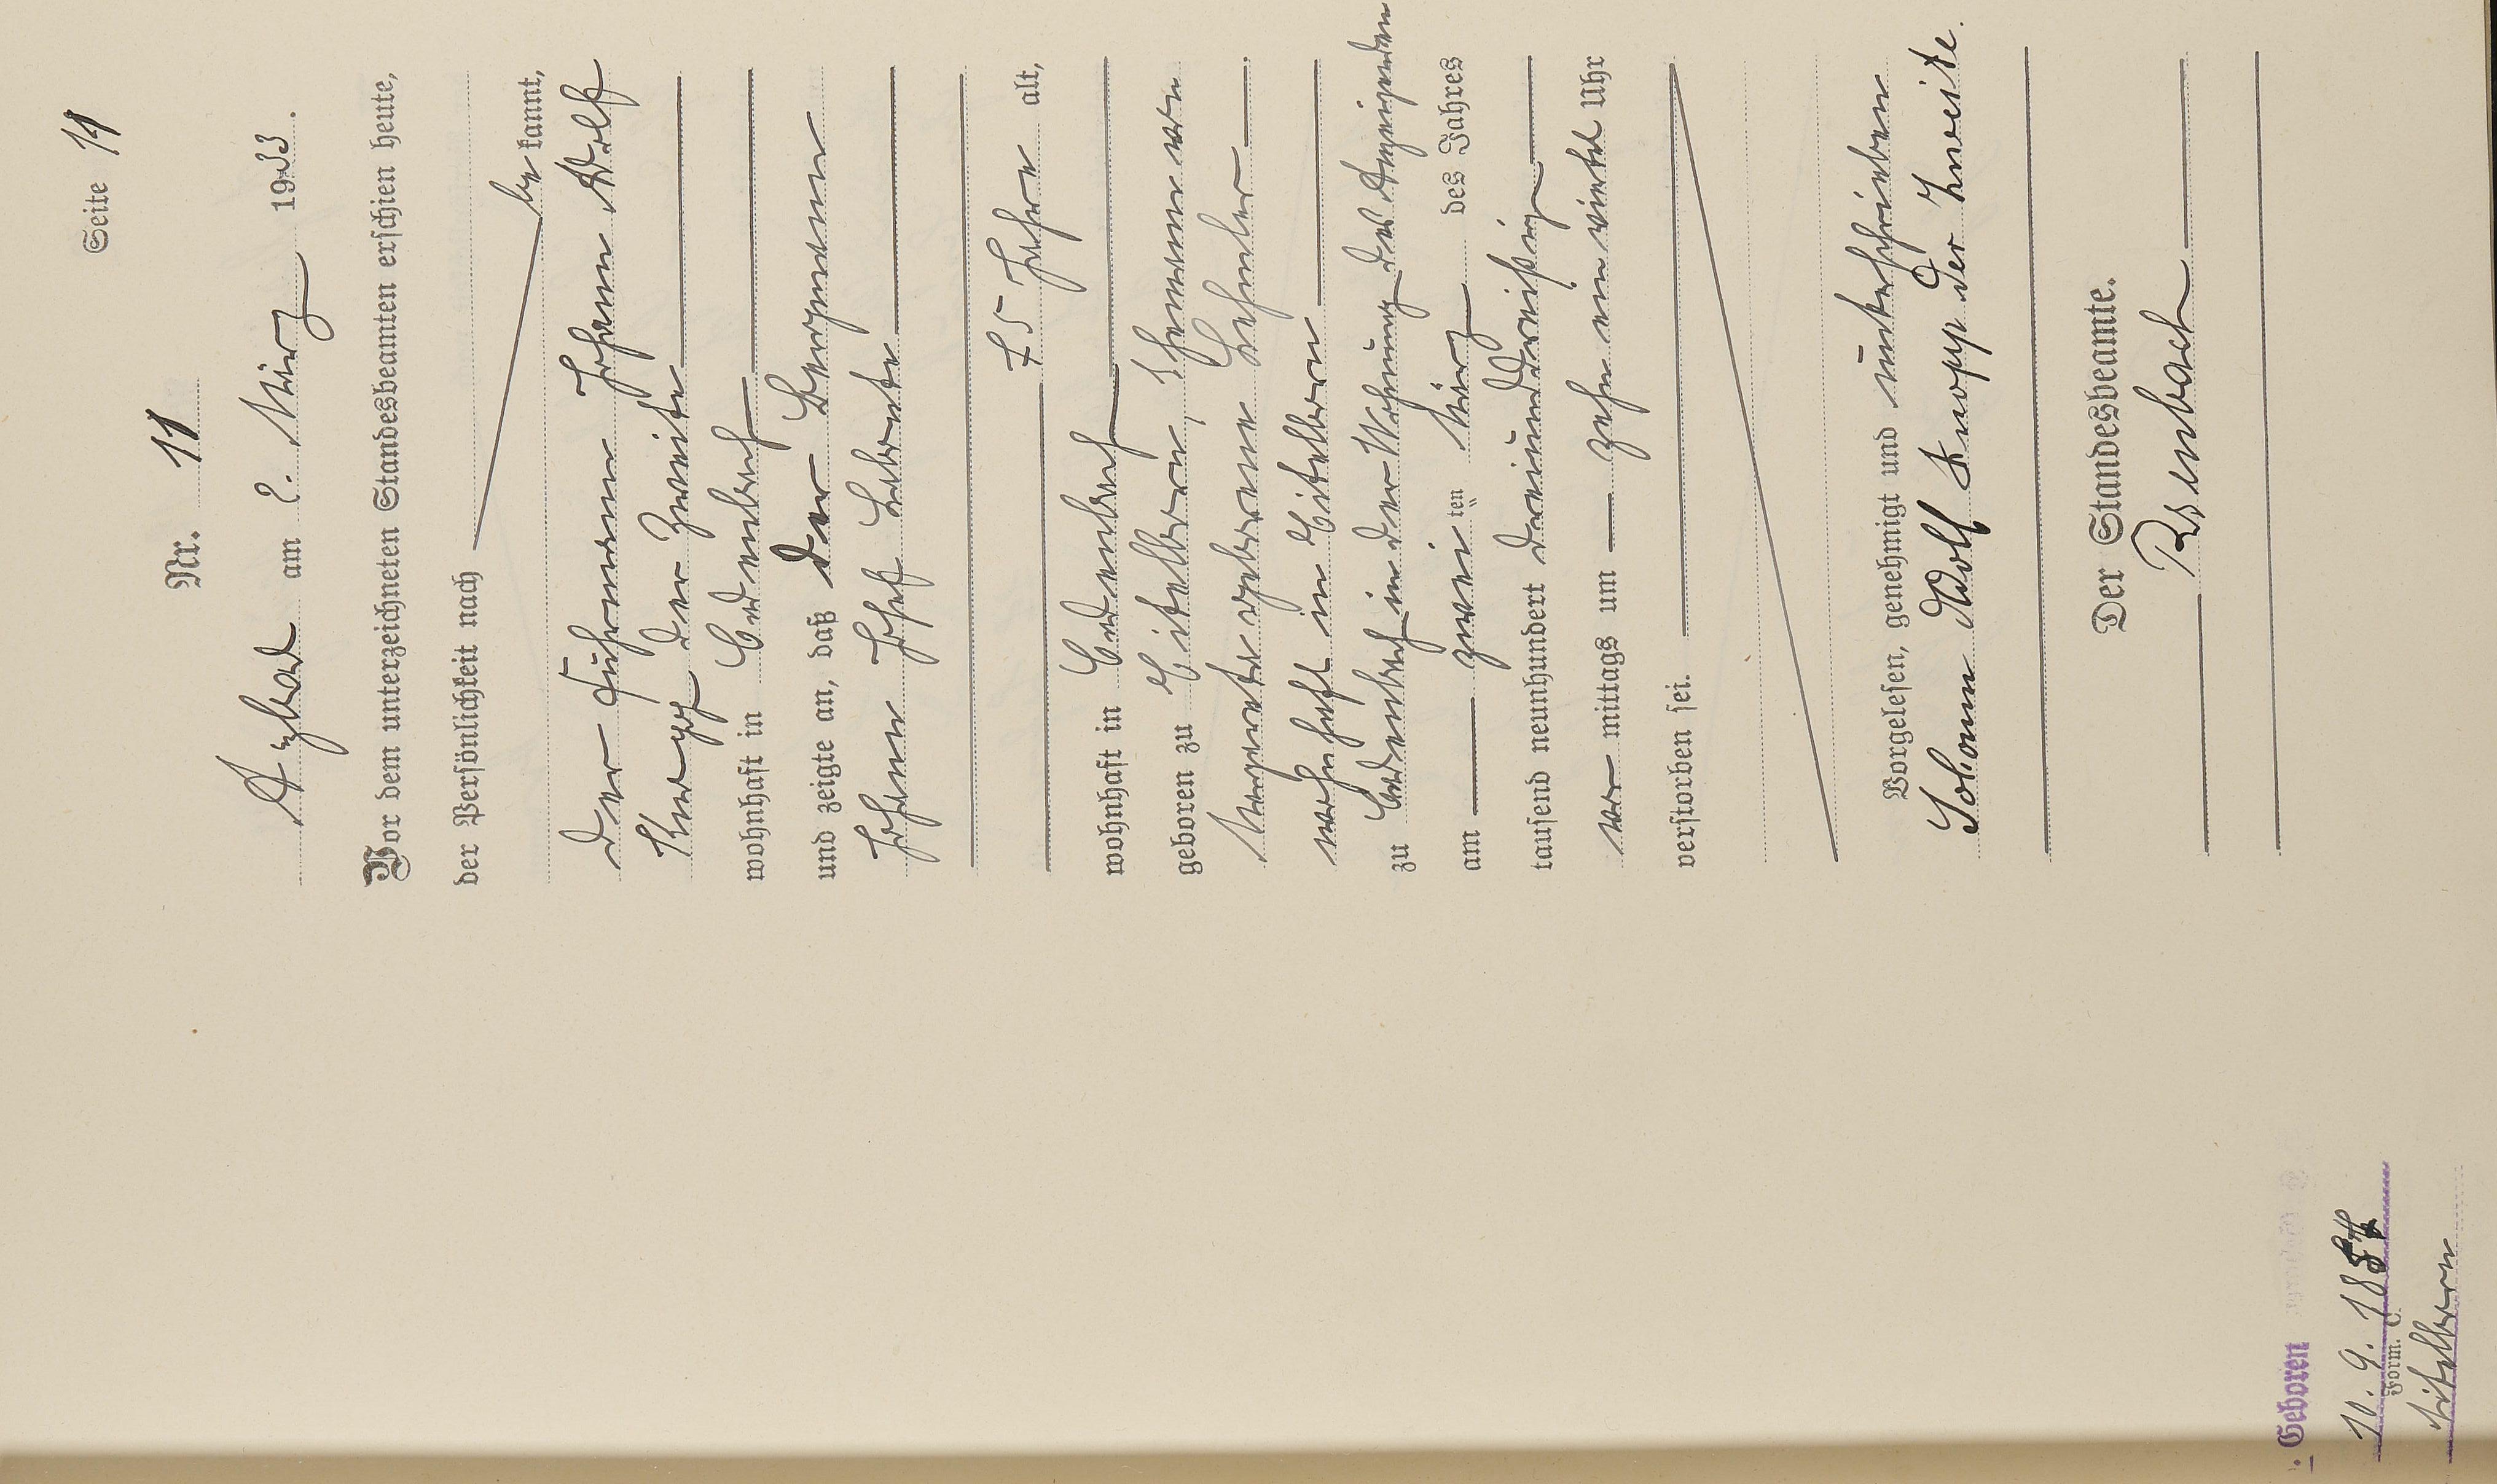 Seite 11
Nr. 11
Asbach am 2. März 1933.
Vor dem unterzeichneten Standesbeamten erschien heute,
der Persönlichkeit nach
be kannt,
der Fuhrmann Johann Adolf
Knopp der Zweite
wohnhaft in Bedenbach
und zeigte an, daß der Bergmann
Johann Josef
75 Jahre alt,
wohnhaft in Bedenbach
geboren zu Eitelborn, Ehemann von
Margareta geborene
wohnhaft in Eitelborn
zu Bedenbach in der Wohnung des Anzeigenden
am zwei ten März des Jahres
tausend neunhundert dreiunddreißig
vor mittags um zehn ein viertel Uhr
verstorben sei.
Vorgelesen, genehmigt und unterschrieben
Johann Adolf Knopp der Zweite.
Der Standesbeamte.
Geboren
10. 9. 18
Form. C.
Eitelborn